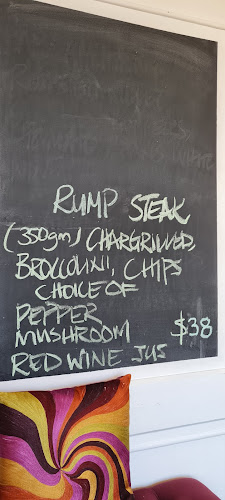 RUMP STEAK
(350gm) CHARGRILLED,
BROCCOLINI, CHIPS
CHOICE OF
PEPPER
MUSHROOM $38
RED WINE JUS